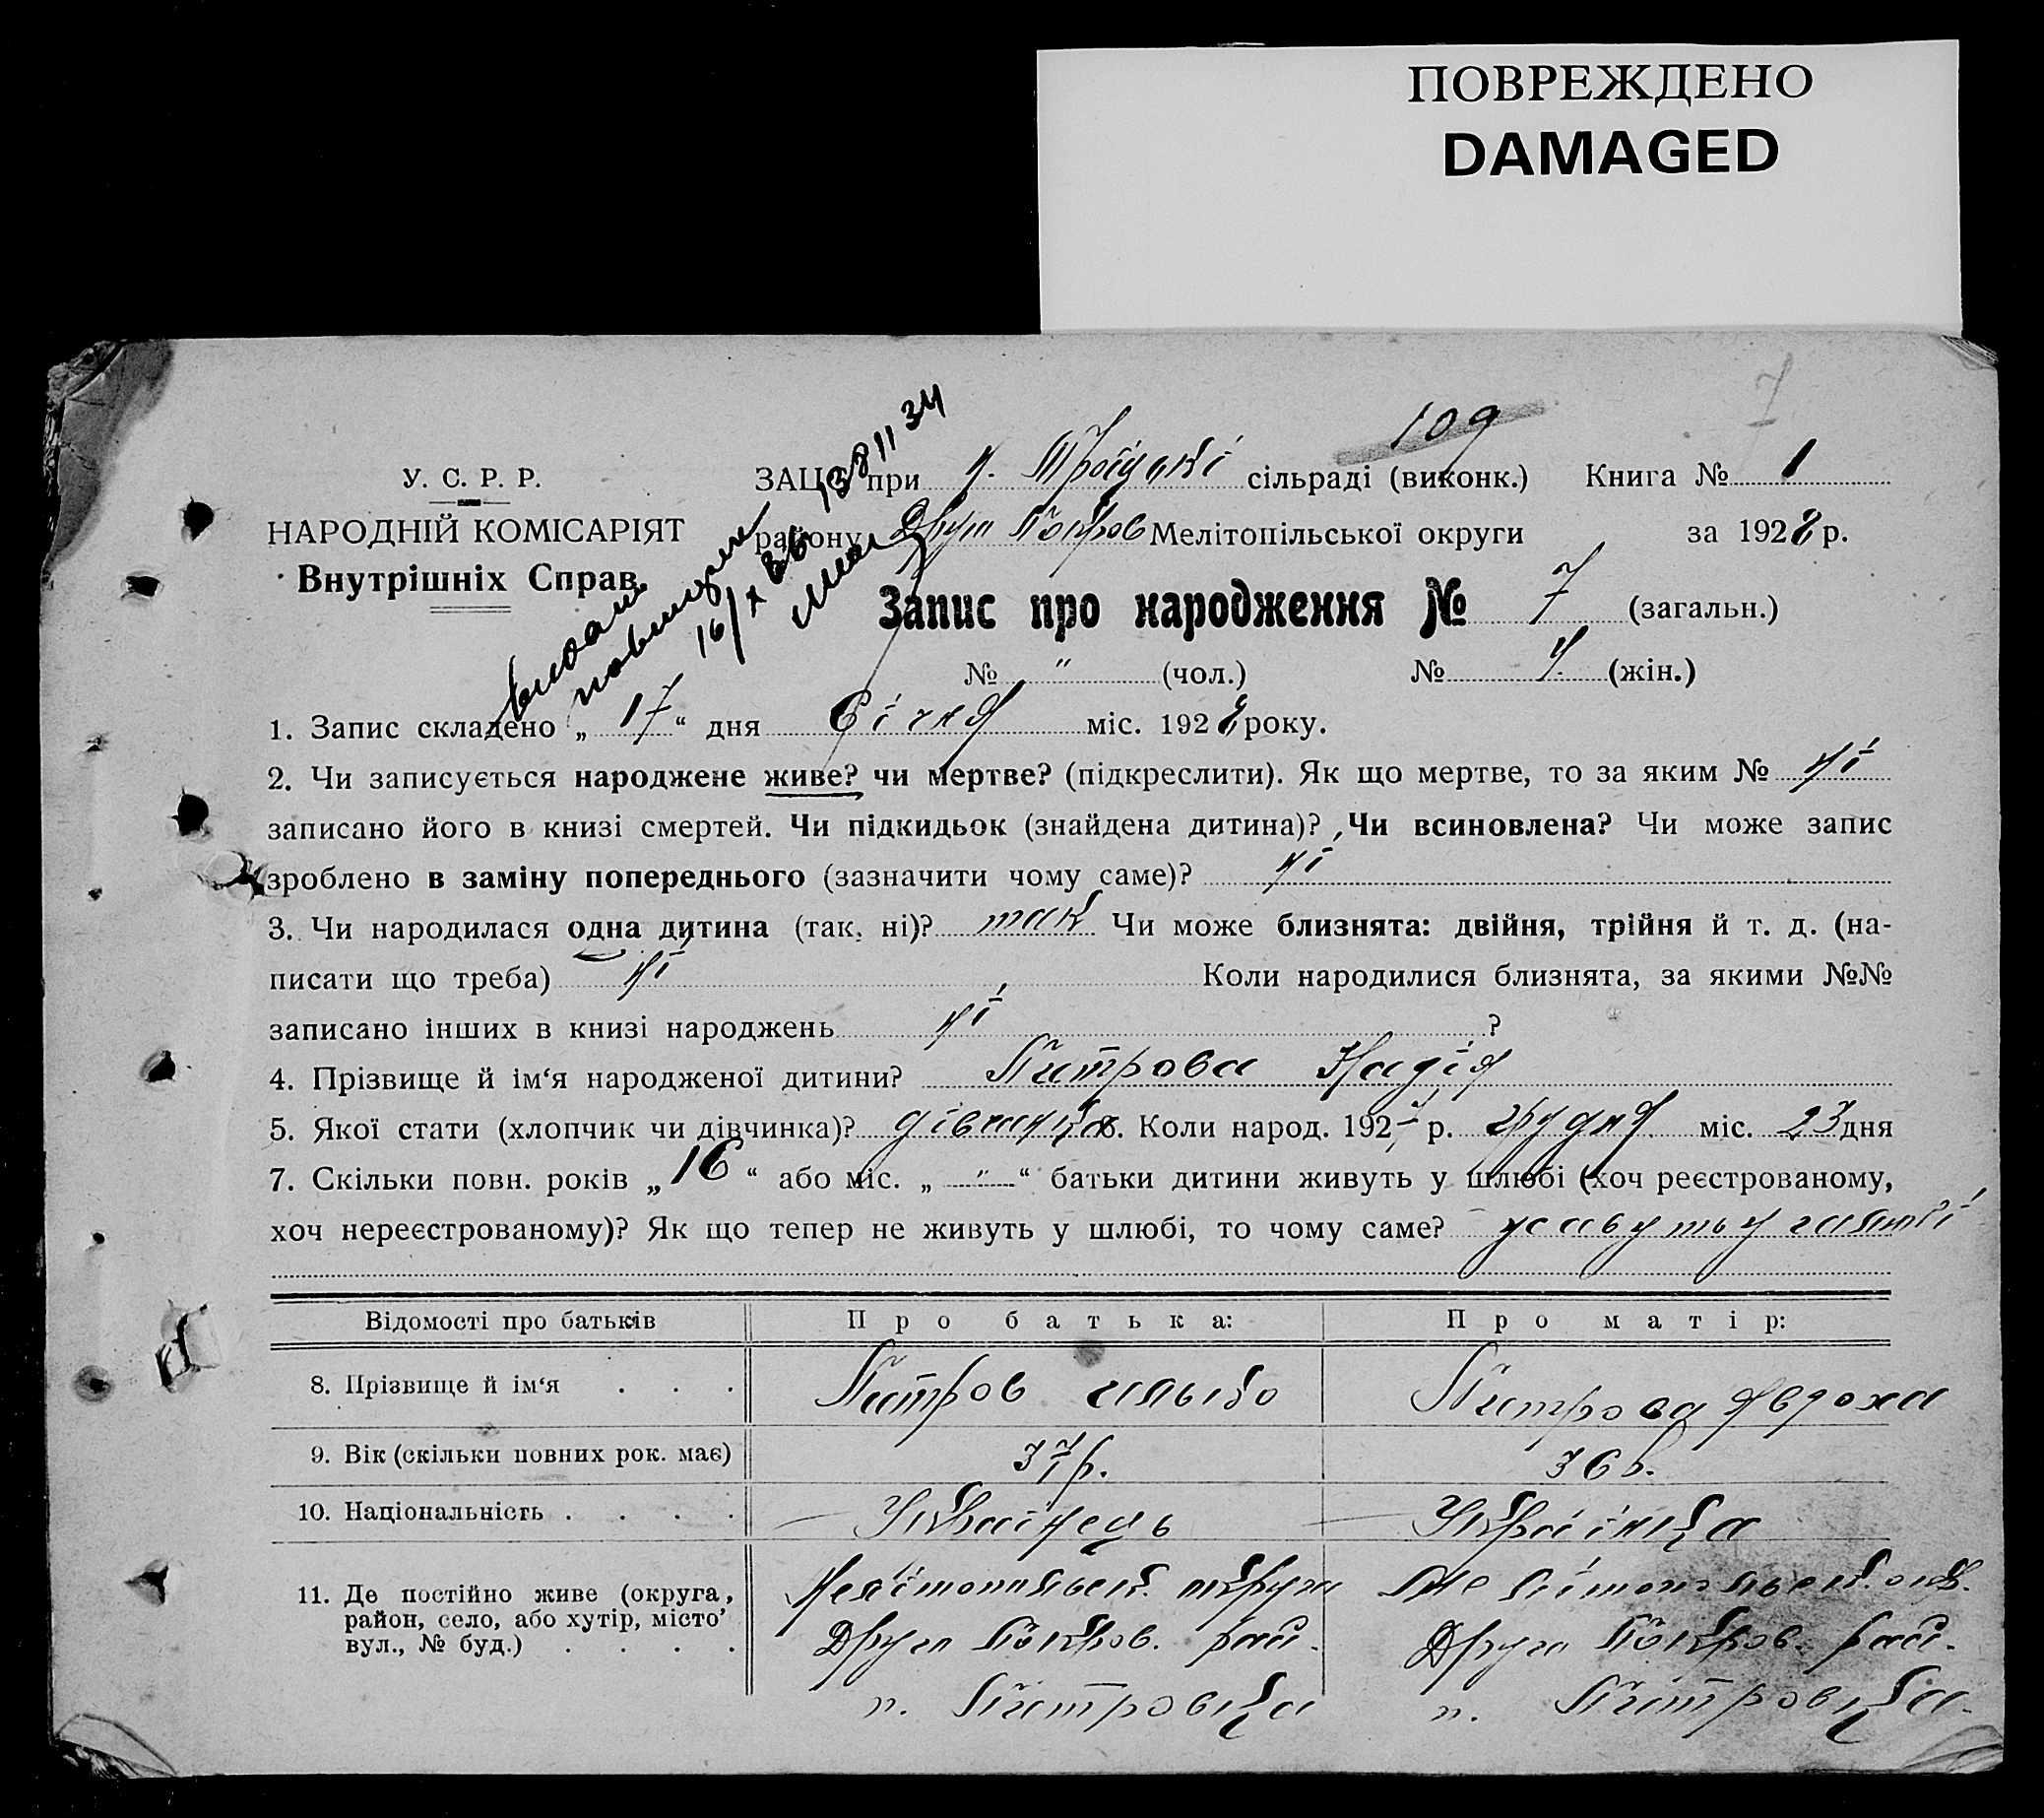 ПОВРЕЖДЕНО
DAMAGED
7
109
У. С. Р. Р.
НАРОДНІЙ КОМІСАРІЯТ
Внутрішніх Справ.
ЗАЦС при Н. Троїцкі сільраді (виконк.) Книга № 1
району Друг Покров Мелітопільської округи за 1928 р.
16/X 36
Запис про народження № 7 (загальн.)
№ " (чол.) № 4 (жін.)
1. Запис складено „ 17 “ дня Січня міс. 1928 року.
2. Чи записується народжене живе? чи мертве? (підкреслити). Як що мертве, то за яким № ні
записано його в книзі смертей. Чи підкидьок (знайдена дитина)? Чи всиновлена? Чи може запис
зроблено в заміну попереднього (зазначити чому саме)? ні
3. Чи народилася одна дитина (так, ні)? так Чи може близнята: двійня, трійня й т. д. (на-
писати що треба) ні Коли народилися близнята, за якими №№
записано інших в книзі народжень ні ?
4. Прізвище й ім‘я народженої дитини? Питрова Надія
5. Якої стати (хлопчик чи дівчинка)? дівчинка. Коли народ. 1927 р. грудня міс. 23 дня
7. Скільки повн. років „ 16 “ або міс. „ " “ батьки дитини живуть у шлюбі (хоч реєстрованому,
хоч нереєстрованому)? Як що тепер не живуть у шлюбі, то чому саме?
Відомості про батьків Про батька: Про матір:
8. Прізвище й ім‘я . . . Питров Питрова Явдоха
9. Вік (скільки повних рок. має) 37 р. 36 р.
10. Національність . . . . Українець Українка
11. Де постійно живе (округа, Мелітопільськ. округи Мелітопільськ. окр.
район, село, або хутір, місто’ Друго Покров. рай. Друго Покров. рай.
вул., № буд.) . . . . п. Питровка п. Питровка.